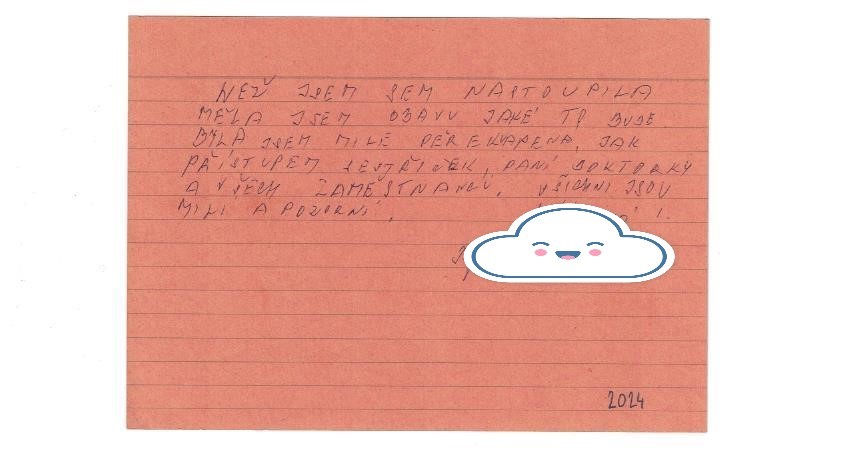 NEŽ JSEM SEM NASTOUPILA
MĚLA JSEM OBAVU JAKÉ TO BUDE.
BYLA JSEM MILE PŘEKVAPENA, JAK
PŘÍSTUPEM SESTŘIČEK, PANÍ DOKTORKY
A VŠECH ZAMĚSTNANCŮ. VŠICHNI JSOU
MILÍ A POZORNÍ.
2024